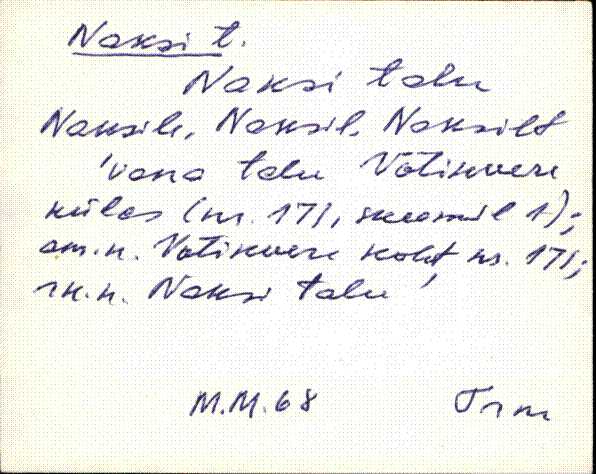 Naksi t.
Naksi talu
Naksile, Naksil, Naksilt
'vana talu Võtikvere
külas (nr. 171, skeemil 1);
am.n. Võtikvere koht nr. 171;
rk.n. Naksi talu'
M.M.68 Trm